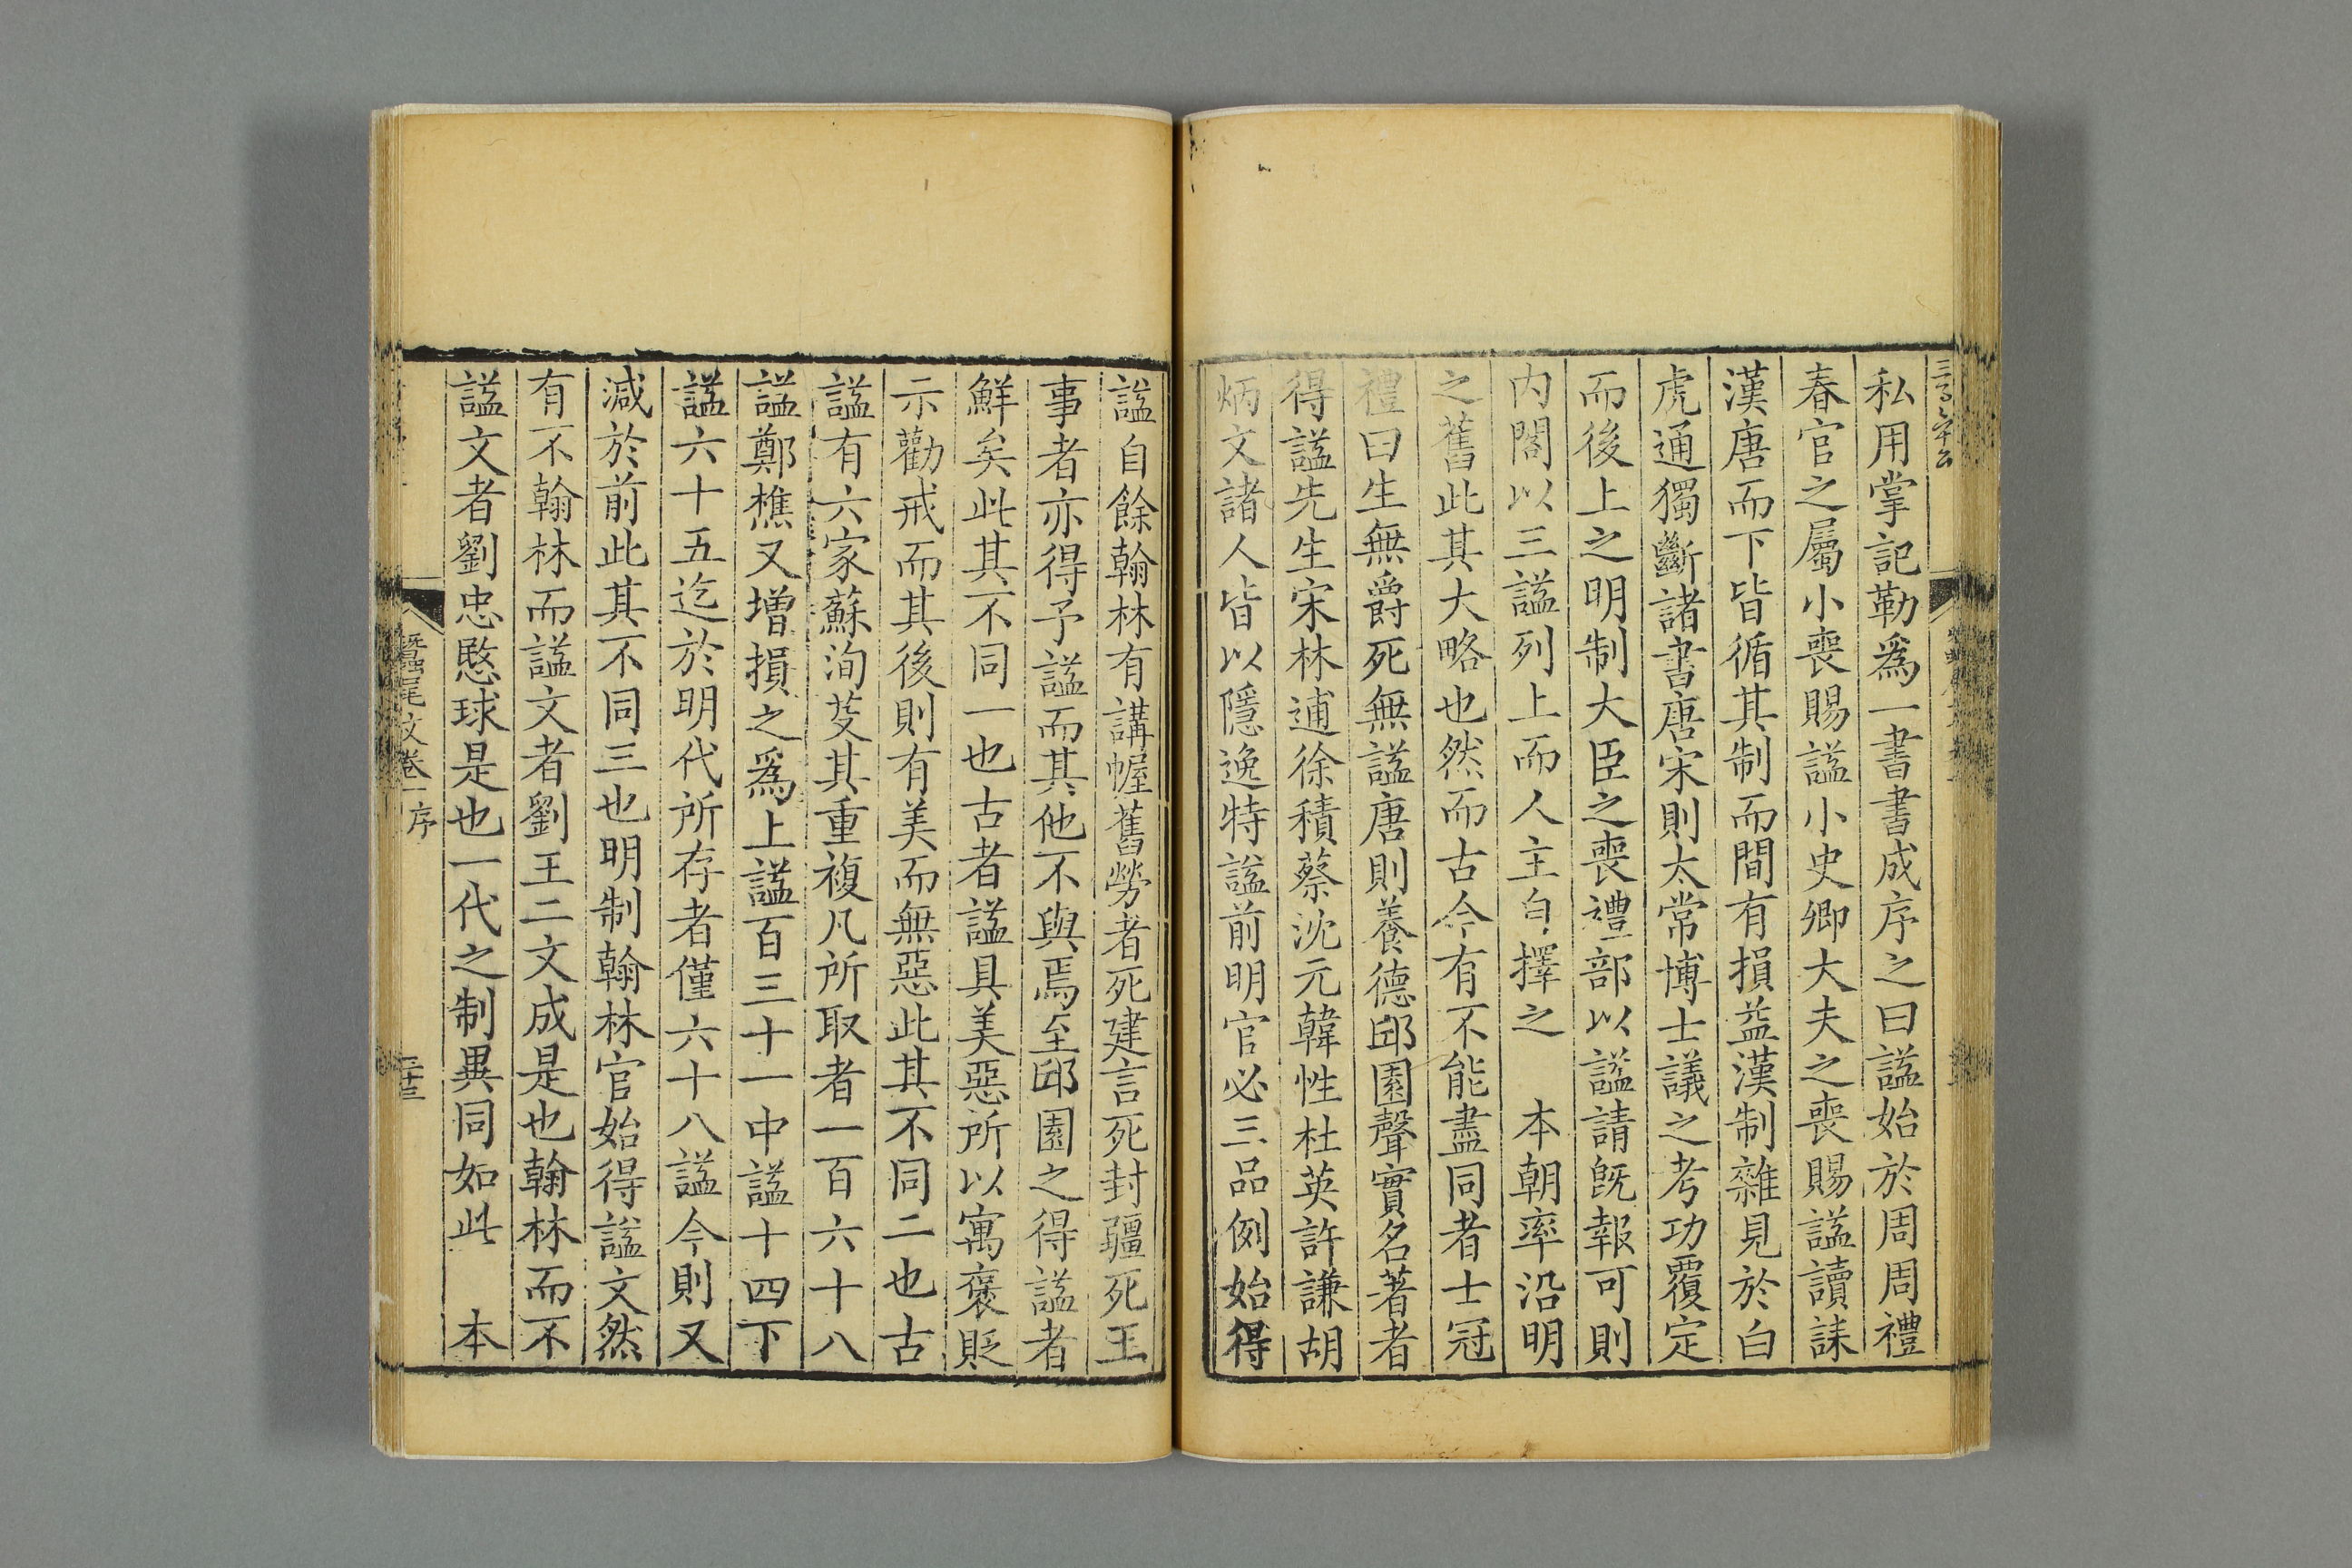 私用掌記勒爲一書書成序之曰謚始於周周禮
春官之屬小喪賜謚小史卿大夫之喪賜謚讀誄
漢唐而下皆循其制而間有損益漢制雜見於白
虎通獨斷諸書唐宋則太常博士議之考功覆定
而後上之明制大臣之喪禮部以謚請旣報可則
内閣以三謚列上而人主自擇之　本朝率沿明
之舊此其大略也然而古今有不能盡同者士冠
禮曰生無爵死無謚唐則養德邱園聲實名著者
得謚先生宋林逋徐積蔡沈元韓性杜英許謙胡
炳文諸人皆以隱逸特謚前明官必三品例始得
謚自餘翰林有講幄舊勞者死建言死封疆死王
事者亦得予謚而其他不與焉至邱園之得謚者
鮮矣此其不同一也古者謚具美惡所以寓褒貶
示勸戒而其後則有美而無惡此其不同二也古
謚有六家蘇洵芟其重複凡所取者一百六十八
謚鄭樵又增損之爲上謚百三十一中謚十四下
謚六十五迄於明代所存者僅六十八謚今則又
減於前此其不同三也明制翰林官始得謚文然
有不翰林而謚文者劉王二文成是也翰林而不
謚文者劉忠愍球是也一代之制異同如此　本
蠶尾文卷一序
二十三